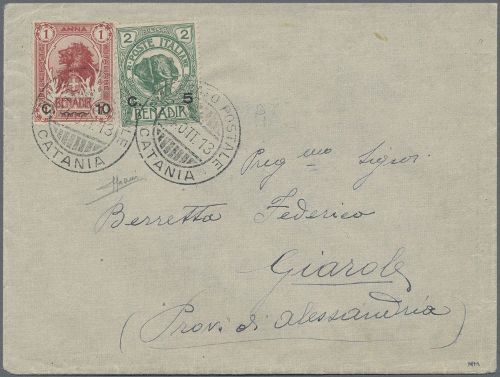 1 ANNA 1
BENADIR
C. 10
2 2
POSTE ITALIANE
C. 5
BENADIR
POSTALE
CATANIA
OTT. 13
CATANIA
Preg mo Signor
Berretta Federico
Giarole
(Prov. di Alessandria)